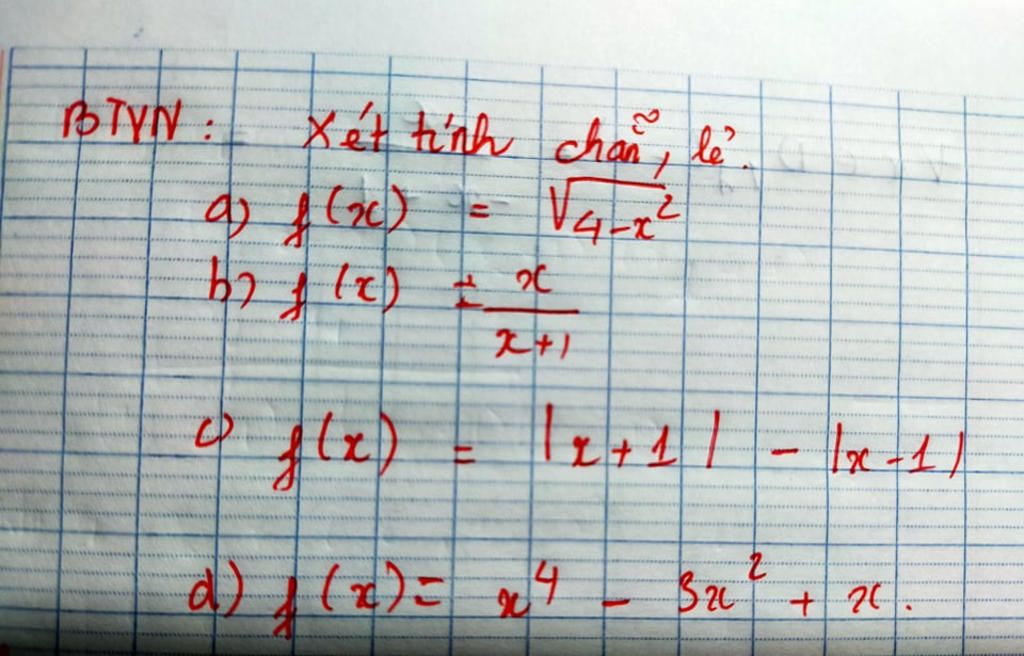 BTVN: Xét tính chẵn, lẻ.
a) f(x) = √4-x²
b) f(x) = x/x+1
c) f(x) = |x+1| - |x-1|
d) f(x) = x⁴ - 3x² + x.